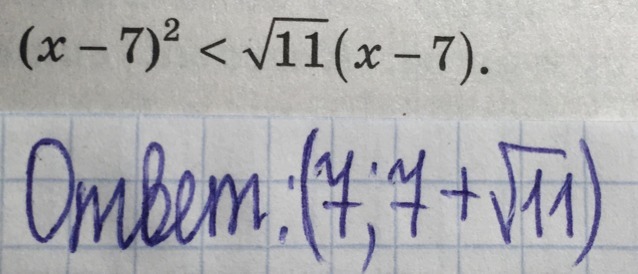 (x − 7)² < √11(x − 7).
Ответ: (7; 7 + √11)